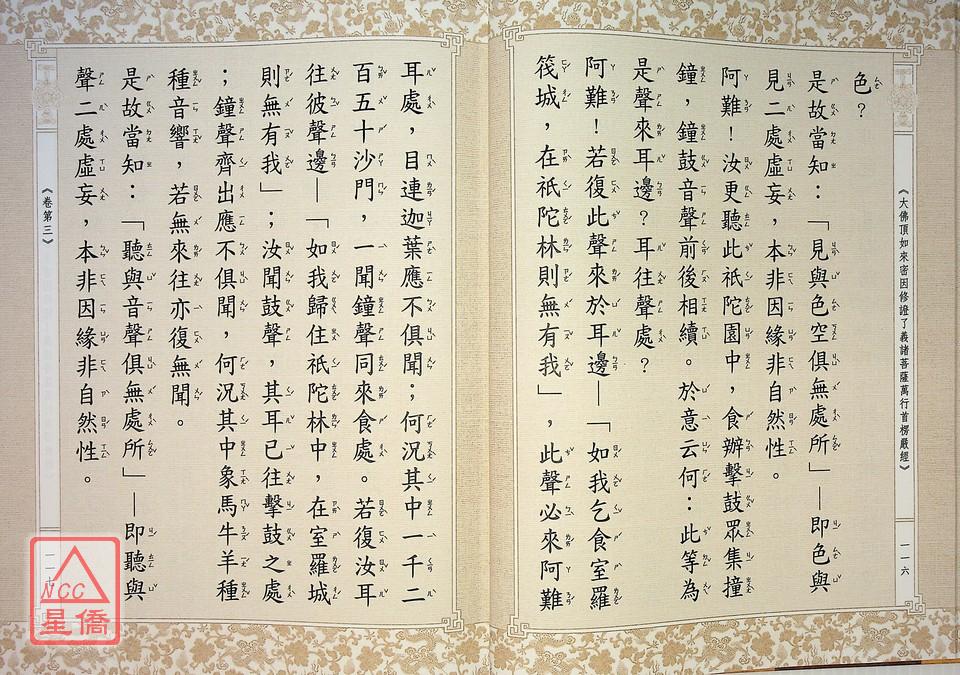 《大佛頂如來密因修證了義諸菩薩萬行首楞嚴經》
一一六
色？
是故當知：「見與色空俱無處所」—即色與
見二處虛妄，本非因緣非自然性。
阿難！汝更聽此祇陀園中，食辦擊鼓眾集撞
鐘，鐘鼓音聲前後相續。於意云何：此等為
是聲來耳邊？耳往聲處？
阿難！若復此聲來於耳邊—「如我乞食室羅
筏城，在祇陀林則無有我」，此聲必來阿難
耳處，目連迦葉應不俱聞；何況其中一千二
百五十沙門，一聞鐘聲同來食處。若復汝耳
往彼聲邊—「如我歸住祇陀林中，在室羅城
則無有我」；汝聞鼓聲，其耳已往擊鼓之處
；鐘聲齊出應不俱聞，何況其中象馬牛羊種
種音響，若無來往亦復無聞。
是故當知：「聽與音聲俱無處所」—即聽與
聲二處虛妄，本非因緣非自然性。
《卷第三》
NCC
星僑